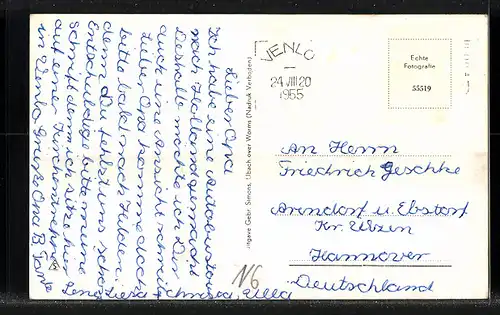 Lieber Opa
Ich habe eine Autobustour
nach Holland gemacht
Deshalb möchte ich Dir
auch eine Ansicht schreiben
Lieber Opa komme doch
bitte bald nach Helden
denn Du fehlst uns schon
Entschuldige bitte meine
Schrift denn ich sitze hier
auf einer
in Venlo Grüße Opa B. Tante
Lena Liesa Christa, Ulla
Gebr. Simons, Ubach over Worms (Nadruk Verboden)
VENLO
24 VIII 20
1955
Echte
Fotografie
55519
An Herrn
Friedrich Geschke
Arendorf u Ebstorf
Kr. Ulzen
Hannover
Deutschland
N6